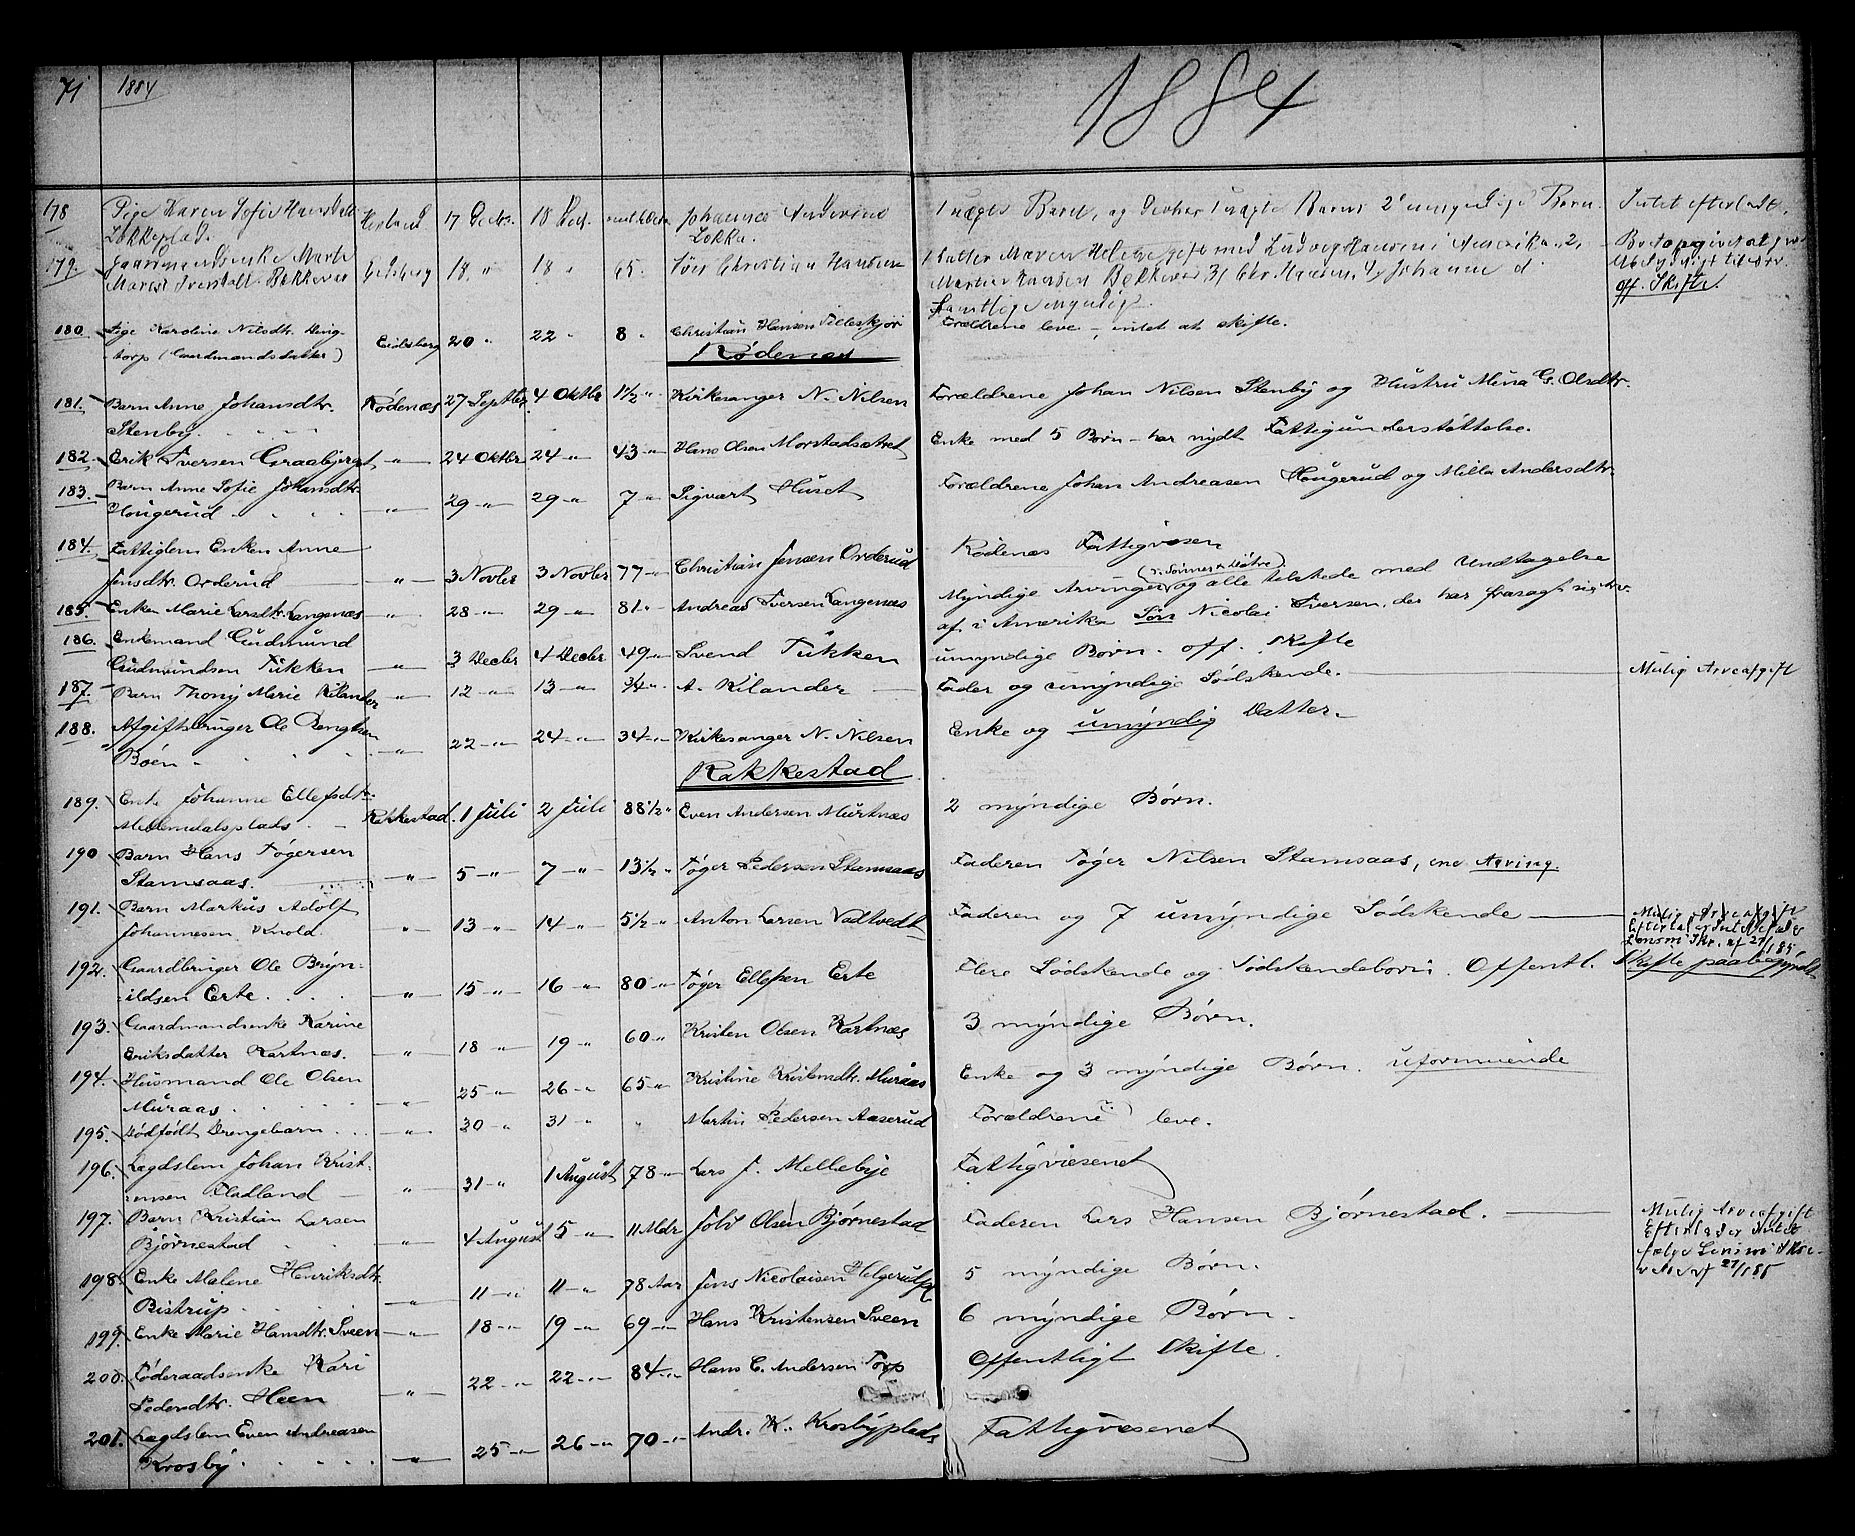 71 1884
1884
178 Pige Karen Sofie Lökkeplad. Herland 17 Decbr. 18 Dec. Johannes Andersen Lökka. 1 uægte Barn, og 2 umyndige Børn. Intet efterladt.
179. Gaardmandsenke Marte Marest Iversdatt. Bekkevar Eidsberg 18 " 18 " 65. Christian Hansen 1 Datter Maren Helene gift med Ludvig Hansen i Amerika, 2, Boet opgivet at
Martin Hansen Bekkevar 3, Chr. Hansen, 4, Johanne d. off. Skifte.
Samtlige myndige.
180. Pige Karoline Nilsdt. Ding-
torp (Gaardmandsdatter) Eidsberg 20 " 22 " 8 " Christian Hansen Tilleskjør Forældrene leve, intet at skifte.
Rødenæs
181. Barn Anne Johansdtr.
Stenby. Rødenæs 27 Septbr 4 Oktbr 1 1/2 " Kirkesanger N. Nilsen Forældrene Johan Nilsen Stenby og Hustru Mina G. Olsdtr.
182. Erik Iversen Graabjerget " 24 Oktbr 24 " 43 " Hans Olsen Morstadsætret Enke med 5 Børn - har nydt Fattigunderstøttelse.
183. Barn Anne Sofie Johansdtr.
Hougerud " 29 " 29 " 7 " Sigvart Huset Forældrene Johan Andreasen Hougerud og Milla Andersdtr.
184. Fattiglem Enken Anne
Jensdtr. Orderud " 3 Novbr 3 Novbr 77 " Christian Jensen Orderud Rødenæs Fattigvæsen
185. Enken Marie Larsdtr. Langenæs " 28 " 29 " 81 " Andreas Iversen Langenæs Myndige Arvinger (Sønner & Døtre) og alle tilstede med Undtagelse
af i Amerika Søn Nicolai Iversen, der har frasagt sig Arv.
186. Enkemand Gudmund
Gudmundsen Tukken " 3 Decbr 4 Decbr 49 " Svend Tukken umyndige Børn. off. Skifte
187. Barn Thony Marie Kilander " 12 " 13 " 3/4 " A. Kilander Fader og umyndige Sødskende. Mulig Arveafgift
188. Afgiftsbruger Ole Bengtsen
Böen " 22 " 24 " 34 " Kirkesanger N. Nilsen Enke og umyndig Datter.
Rakkestad
189. Enke Johanne Ellefsdtr.
Mellemdalsplads. Rakkestad. 1 Juli 2 Juli 88 1/2 " Even Andersen Murtnæs 2 myndige Børn.
190 Barn Hans Tøgersen
Stamsaas. " 5 " 7 " 13 1/2 " Tøger Pedersen Stamsaas Faderen Tøger Nilsen Stamsaas, ene Arving.
191. Barn Markus Adolf
Johannesen Knold. " 13 " 14 " 5 1/2 " Anton Larsen Vadtvedt Faderen og 7 umyndige Sødskende Mulig Arveafgift
Efterlader Intet
192. Gaardbruger Ole Bryn-
ildsen Erte. " 15 " 16 " 80 " Tøger Ellefsen Erte Flere Sødskende og Sødskendebørn. Offentl. Skifte paabegyndt
193. Gaardmandsenke Karine
Eriksdatter Kartnæs. " 18 " 19 " 60 " Kristen Olsen Kartnæs 3 myndige Børn.
194. Husmand Ole Olsen
Muraas " 25 " 26 " 65 " Kristine Kristensdtr. Muraas Enke og 3 myndige Børn. uformuende
195. Dødfødt Drengebarn " 30 " 31 " " Martin Pedersen Aaserud Forældrene leve.
196. Lægdslem Johan Krist-
ensen Fladland " 31 " 1 August 78 " Lars J. Mellebye Fattigvæsenet
197. Barn Kristian Larsen
Bjørnestad " 4 August 5 " 11 Mdr. Olsen Bjørnestad Faderen Lars Hansen Bjørnestad. Mulig Arveafgift
Efterlader Intet
198. Enke Malene Henriksdtr.
Bistrup. " 11 " 11 " 78 Aar Jens Nicolaisen 5 myndige Børn.
199. Enke Marie Hansdtr. Sveen " 18 " 19 " 69 " Hans Kristensen Sveen 6 myndige Børn.
200. Føderaadsenke Kari
Pedersdtr. Heen " 22 " 22 " 84 " Hans C. Andersen Torp Offentligt Skifte.
201. Lægdslem Even Andreasen
Krosby. " 25 " 26 " 70 " Andr. K. Krosbyplads Fattigvæsenet